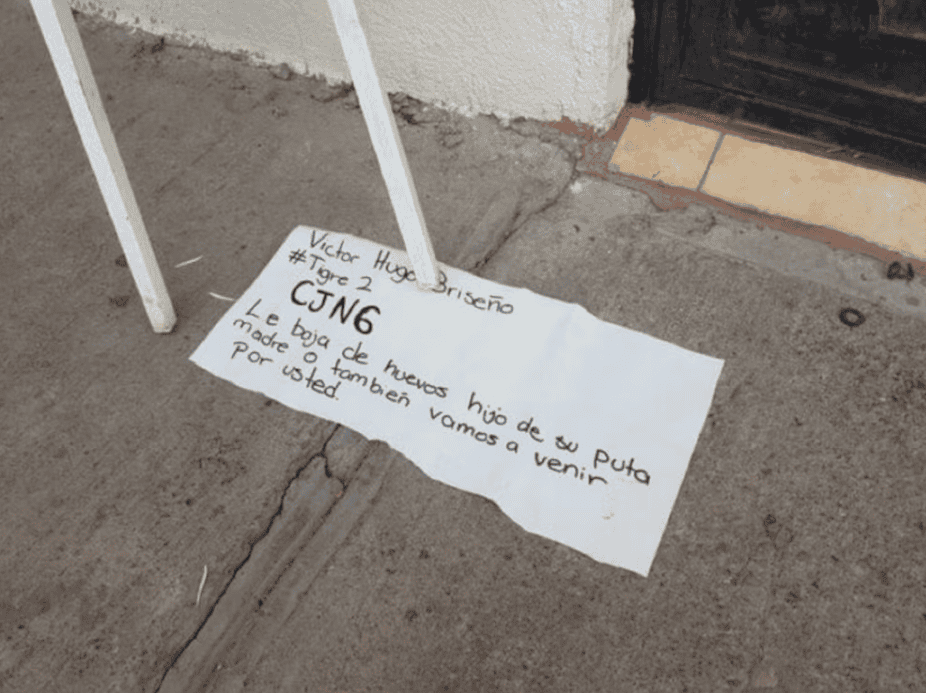 Victor Hugo Briseño
#Tigre 2
CJNG
Le baja de huevos hijo de su puta
madre o también vamos a venir
por usted.